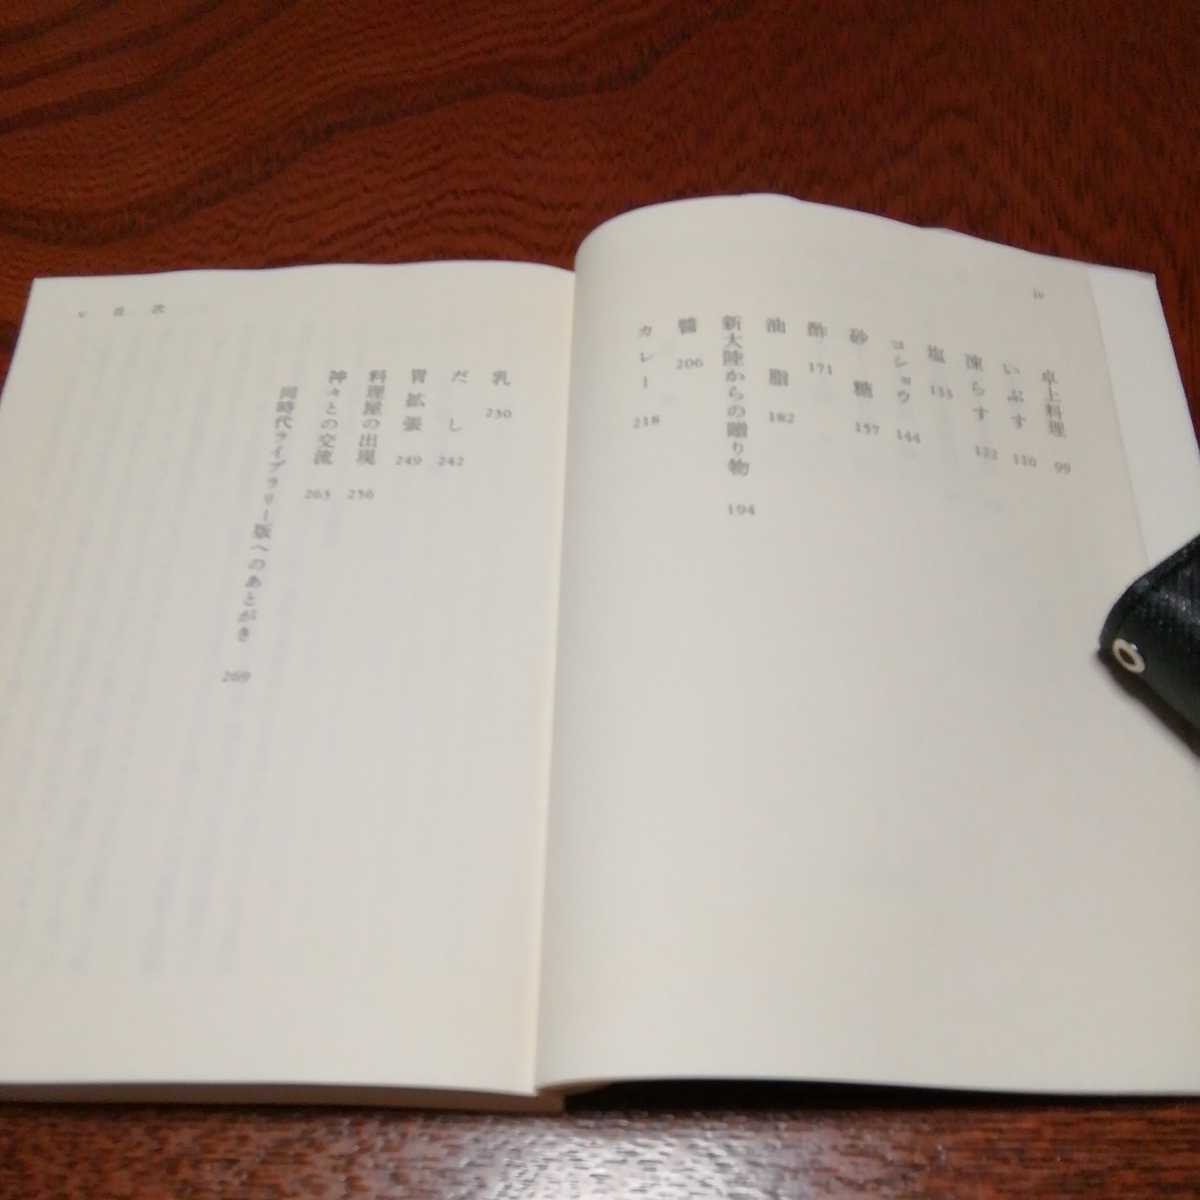 iv
卓上料理 99
いぶす 110
凍らす 122
塩 133
コショウ 144
砂糖 157
酢 171
油脂 182
新大陸からの贈り物 194
醬 206
カレー 218
v 目次
乳 230
だし 242
胃拡張 249
料理屋の出現 256
神々との交流 263
同時代ライブラリー版へのあとがき 269